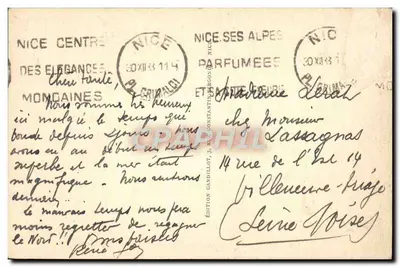 NICE CENTRE
DES ELEGANCES
MONDAINES
NICE
30 XII 33 11 4
PL. GRIMALDI
NICE. SES ALPES
PARFUMEES
NICE
30 XII 33 11
Chère tante
Nous sommes très heureux
ici malgré le temps que
boude depuis jours. Nous
avons eu au début un temps
superbe et la mer était
magnifique. Nous rentrons
demain.
Le mauvais temps nous fera
moins regretter de regagner
le Nord!! Bons baisers
René
Madame
chez Monsieur
Lassagnas
14 rue de l'Est 14
Villeneuve-
(Seine Oise)
EDITION
CPArama.com